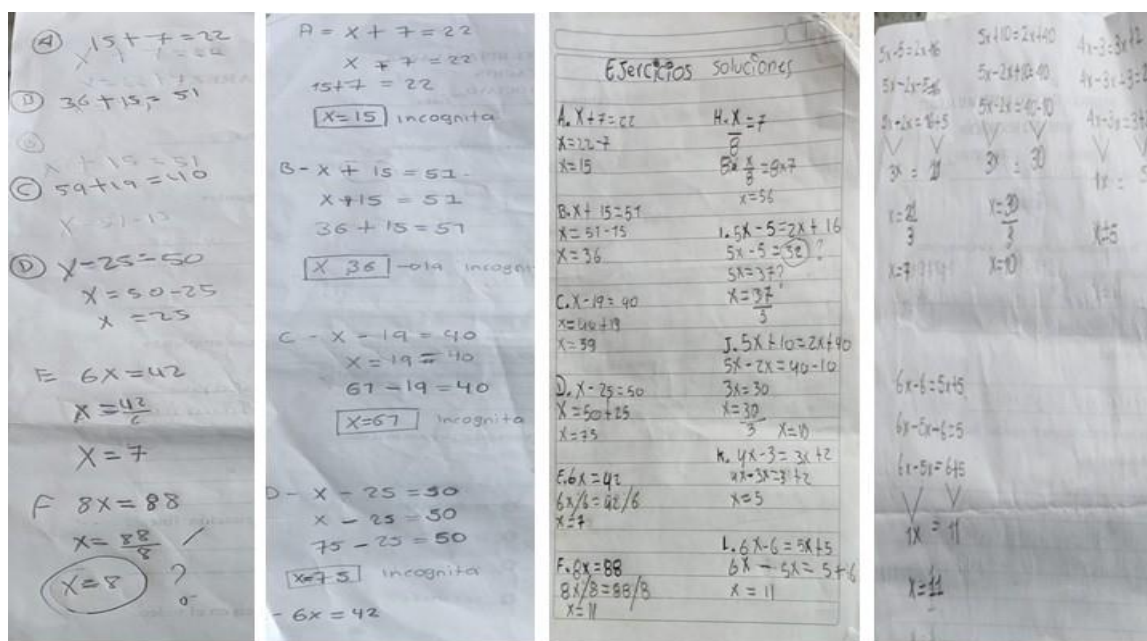 A 15 + 7 = 22
B 36 + 15 = 51
x + 15 = 51
C 59 + 19 = 40
D x - 25 = 50
x = 50 - 25
x = 25
E 6x = 42
x = 42/6
x = 7
F 8x = 88
x = 88/8
x = 8 ?
A = x + 7 = 22
x + 7 = 22
15 + 7 = 22
x = 15 incognita
B - x + 15 = 51
x + 15 = 51
36 + 15 = 51
x 36
C - x - 19 = 40
x = 19 = 40
61 - 19 = 40
x = 61 incognita
D - x - 25 = 50
x - 25 = 50
75 - 25 = 50
x = 75 incognita
- 6x = 42
Ejercicios soluciones
A. x + 7 = 22
x = 22 - 7
x = 15
B. x + 15 = 51
x = 51 - 15
x = 36
C. x - 19 = 40
x = 40 + 19
x = 59
D. x - 25 = 50
x = 50 + 25
x = 75
E. 6x = 42
6x/6 = 42/6
x = 7
F. 8x = 88
8x/8 = 88/8
x = 11
H. x/8 = 7
8x x/8 = 8x7
x = 56
I. 5x - 5 = 2x + 16
5x - 5 = 32 ?
5x = 37?
J. 5x + 10 = 2x + 40
5x - 2x = 40 - 10
3x = 30
x = 30/3 x = 10
K. 4x - 3 = 3x + 2
x = 5
L. 6x - 6 = 5x + 5
6x - 5x = 5 + 6
x = 11
5x - 5 = 2x + 16
3x = 21
x = 21/3
x = 7
5x + 10 = 2x + 40
5x - 2x + 10 = 40
5x - 2x = 40 - 10
3x = 30
x = 30/3
x = 10
4x - 3 = 3x + 2
1x = 5
x = 5
6x - 6 = 5x + 5
6x - 5x - 6 = 5
6x - 5x = 6 + 5
1x = 11
x = 11